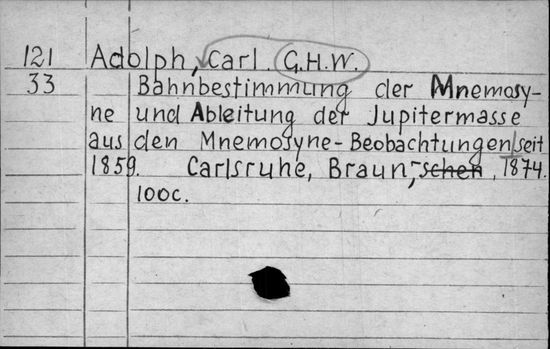 121 Adolph, Carl G.H.W.
33 Bahnbestimmung der Mnemosy-
ne und Ableitung der Jupitermasse
aus den Mnemosyne-Beobachtungen seit
1859. Carlsruhe, Braun, schen, 1874.
100c.